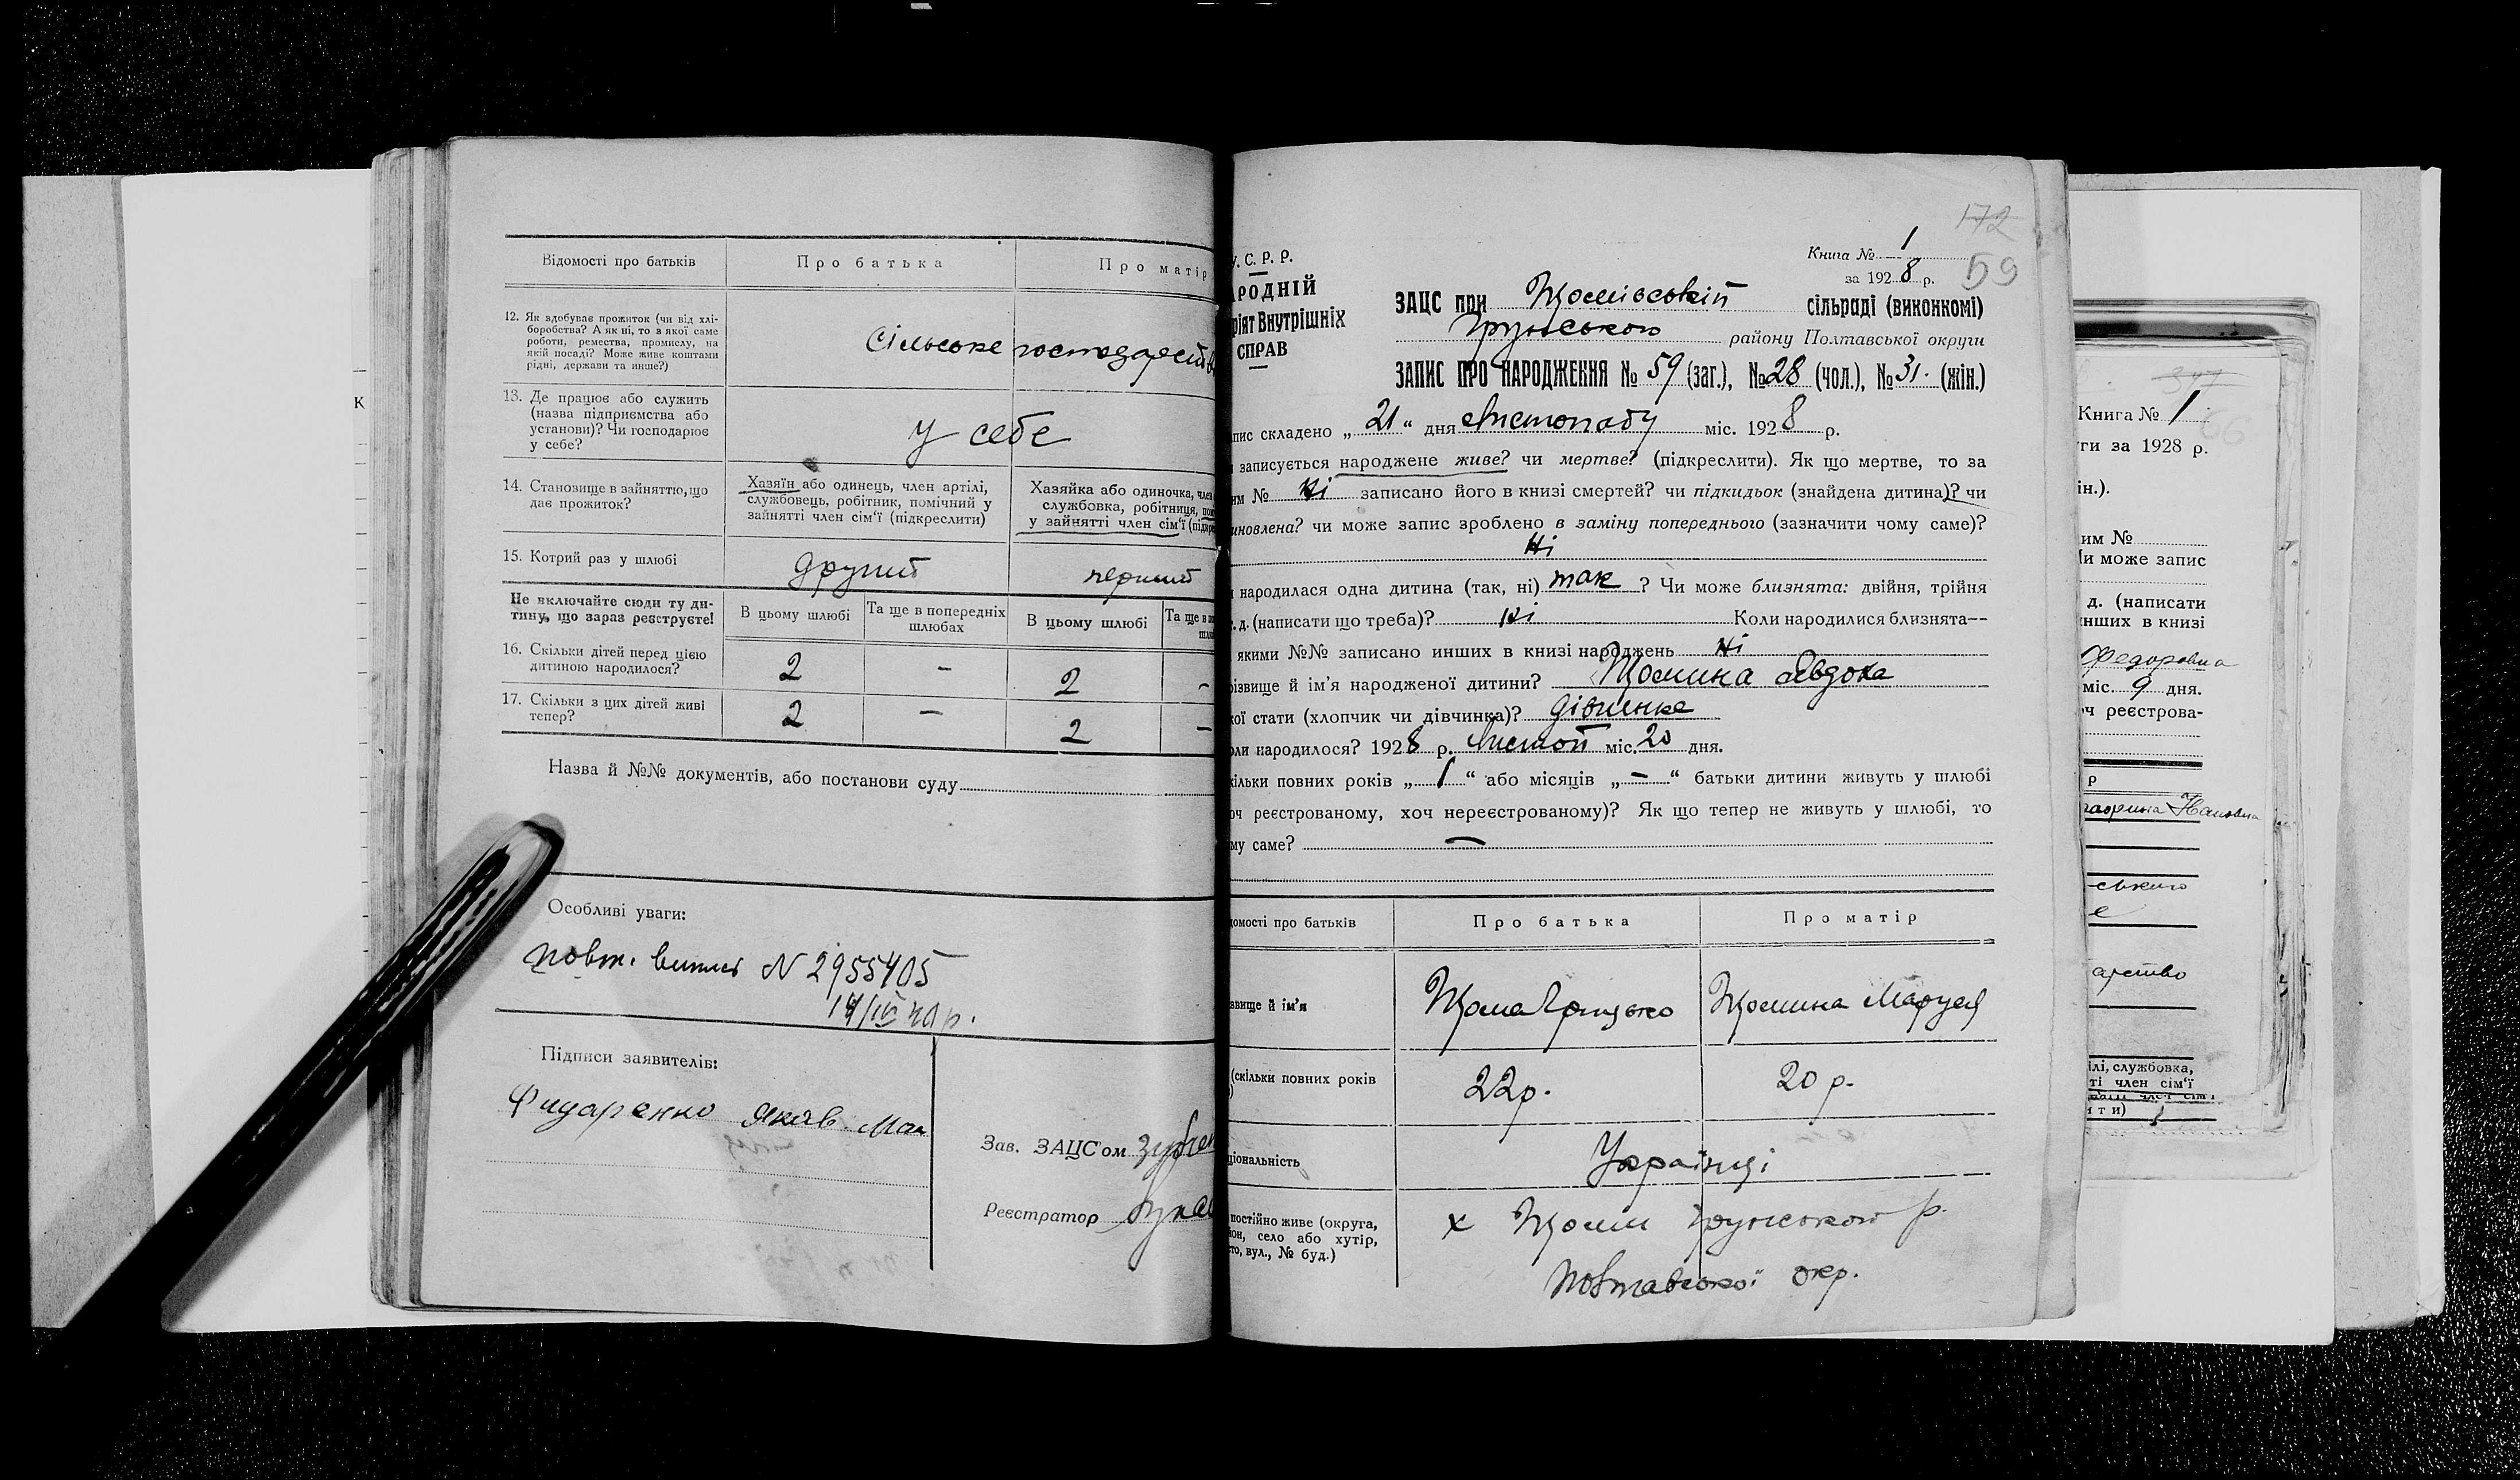 Відомості про батьків
Про батька
Про матір
12. Як здобуває прожиток (чи від хлі-
боробства? А як ні, то з якої саме
роботи, ремества, промислу, на
якій посаді? Може живе коштами
рідні, держави та инше?)
Сільське господарств
13. Де працює або служить
(назва підприємства або
установи)? Чи господарює
у себе?
у себе
14. Становище в зайняттю, що
дає прожиток?
Хазяїн або одинець, член артілі,
службовець, робітник, помічний у
зайнятті член сім'ї (підкреслити)
Хазяйка або одиночка, член
службовка, робітниця,
у зайнятті член сім'ї
15. Котрий раз у шлюбі
другий
перший
Не включайте сюди ту ди-
тину, що зараз реєструєте!
В цьому шлюбі
Та ще в попередніх
шлюбах
В цьому шлюбі
Та ще в
16. Скільки дітей перед цією
дитиною народилося?
2 - 2 -
17. Скільки з цих дітей живі
тепер?
2 - 2 -
Назва й №№ документів, або постанови суду
Особливі уваги:
повт. N 2955405
Підписи заявителів:
Яков
Зав. ЗАЦС'ом
Реєстратор
172
59
Книга № 1
за 1928 р.
У. С. Р. Р.
РОДНІЙ
ріят Внутрішніх
СПРАВ
ЗАЦС при сільраді (виконкомі)
Грунського району Полтавської округи
ЗАПИС ПРО НАРОДЖЕННЯ № 59 (заг.), № 28 (чол.), № 31. (жін.)
пис складено „21“ дня Листопаду міс. 1928 р.
записується народжене живе? чи мертве? (підкреслити). Як що мертве, то за
им № Ні записано його в книзі смертей? чи підкидьок (знайдена дитина)? чи
иновлена? чи може запис зроблено в заміну попереднього (зазначити чому саме)?
Ні
народилася одна дитина (так, ні) так ? Чи може близнята: двійня, трійня
т. д. (написати що треба)? Ні Коли народилися близнята--
якими №№ записано инших в книзі народжень Ні
різвище й ім'я народженої дитини? Щомина Явдоха
кої стати (хлопчик чи дівчинка)? дівчинка
оли народилося? 1928 р. Листоп міс. 20 дня.
кільки повних років „1“ або місяців „—“ батьки дитини живуть у шлюбі
оч реєстрованому, хоч нереєстрованому)? Як що тепер не живуть у шлюбі, то
му саме? —
домості про батьків
Про батька
Про матір
звище й ім'я
Щома Грицько
Щомина Маруся
(скільки повних років
22 р.
20 р.
ціональність
Українці
постійно живе (округа,
йон, село або хутір,
сто, вул., № буд.)
х Щоми Грунського р.
Полтавської окр.
347
Книга № 1
66
ги за 1928 р.
ін.).
им №
Чи може запис
д. (написати
нших в книзі
Федоровна
міс. 9 дня.
ч реєстрова-
р
ського
арство
ілі, службовка,
ті член сім'ї